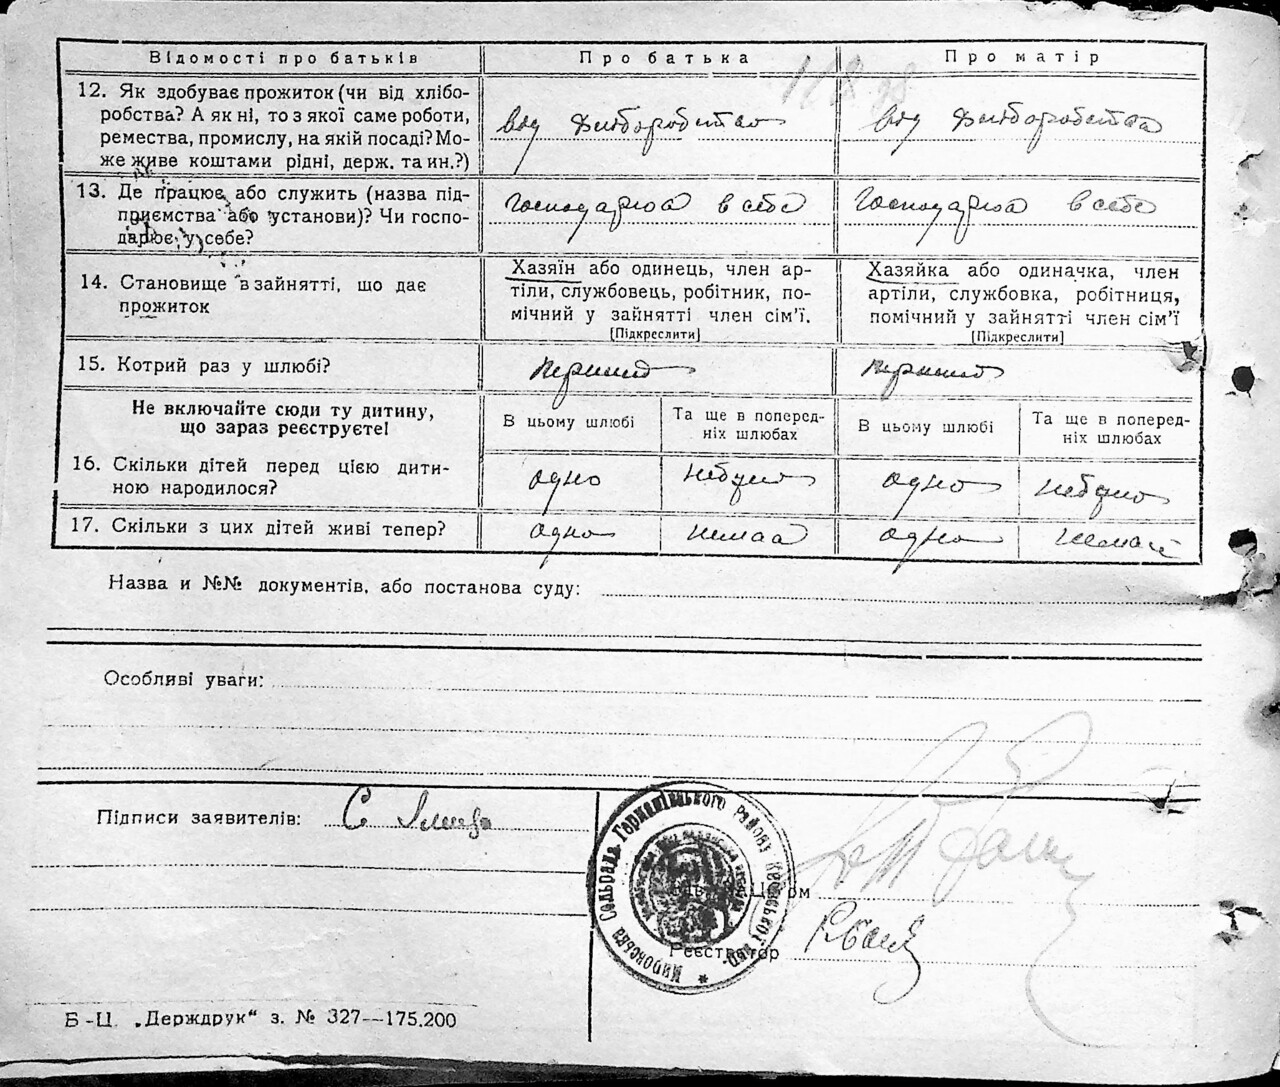 Відомості про батьків Про батька Про матір
12. Як здобуває прожиток (чи від хлібо-
робства? А як ні, то з якої саме роботи,
ремества, промислу, на якій посаді? Мо-
же живе коштами рідні, держ. та ин.?)
від хліборобства від хліборобства
13. Де працює або служить (назва під-
приємства або установи)? Чи госпо-
дарює у себе?
господарюа в себе господарюа в себе
14. Становище в зайнятті, що дає
прожиток
Хазяїн або одинець, член ар-
тіли, службовець, робітник, по-
мічний у зайнятті член сім'ї.
[Підкреслити]
Хазяйка або одиначка, член
артіли, службовка, робітниця,
помічний у зайнятті член сім'ї
[Підкреслити]
15. Котрий раз у шлюбі?
Не включайте сюди ту дитину,
що зараз реєструєте!
В цьому шлюбі
Та ще в поперед-
ніх шлюбах
В цьому шлюбі
Та ще в поперед-
ніх шлюбах
16. Скільки дітей перед цією дити-
ною народилося?
одно небуло одно небуло
17. Скільки з цих дітей живі тепер?
одно немаа одно
Назва и №№ документів, або постанова суду:
Особливі уваги:
Підписи заявителів: С
Мировська Сельрада Германівського району Київської
Реєстратор
Б-Ц. „Держдрук" з. № 327—175.200